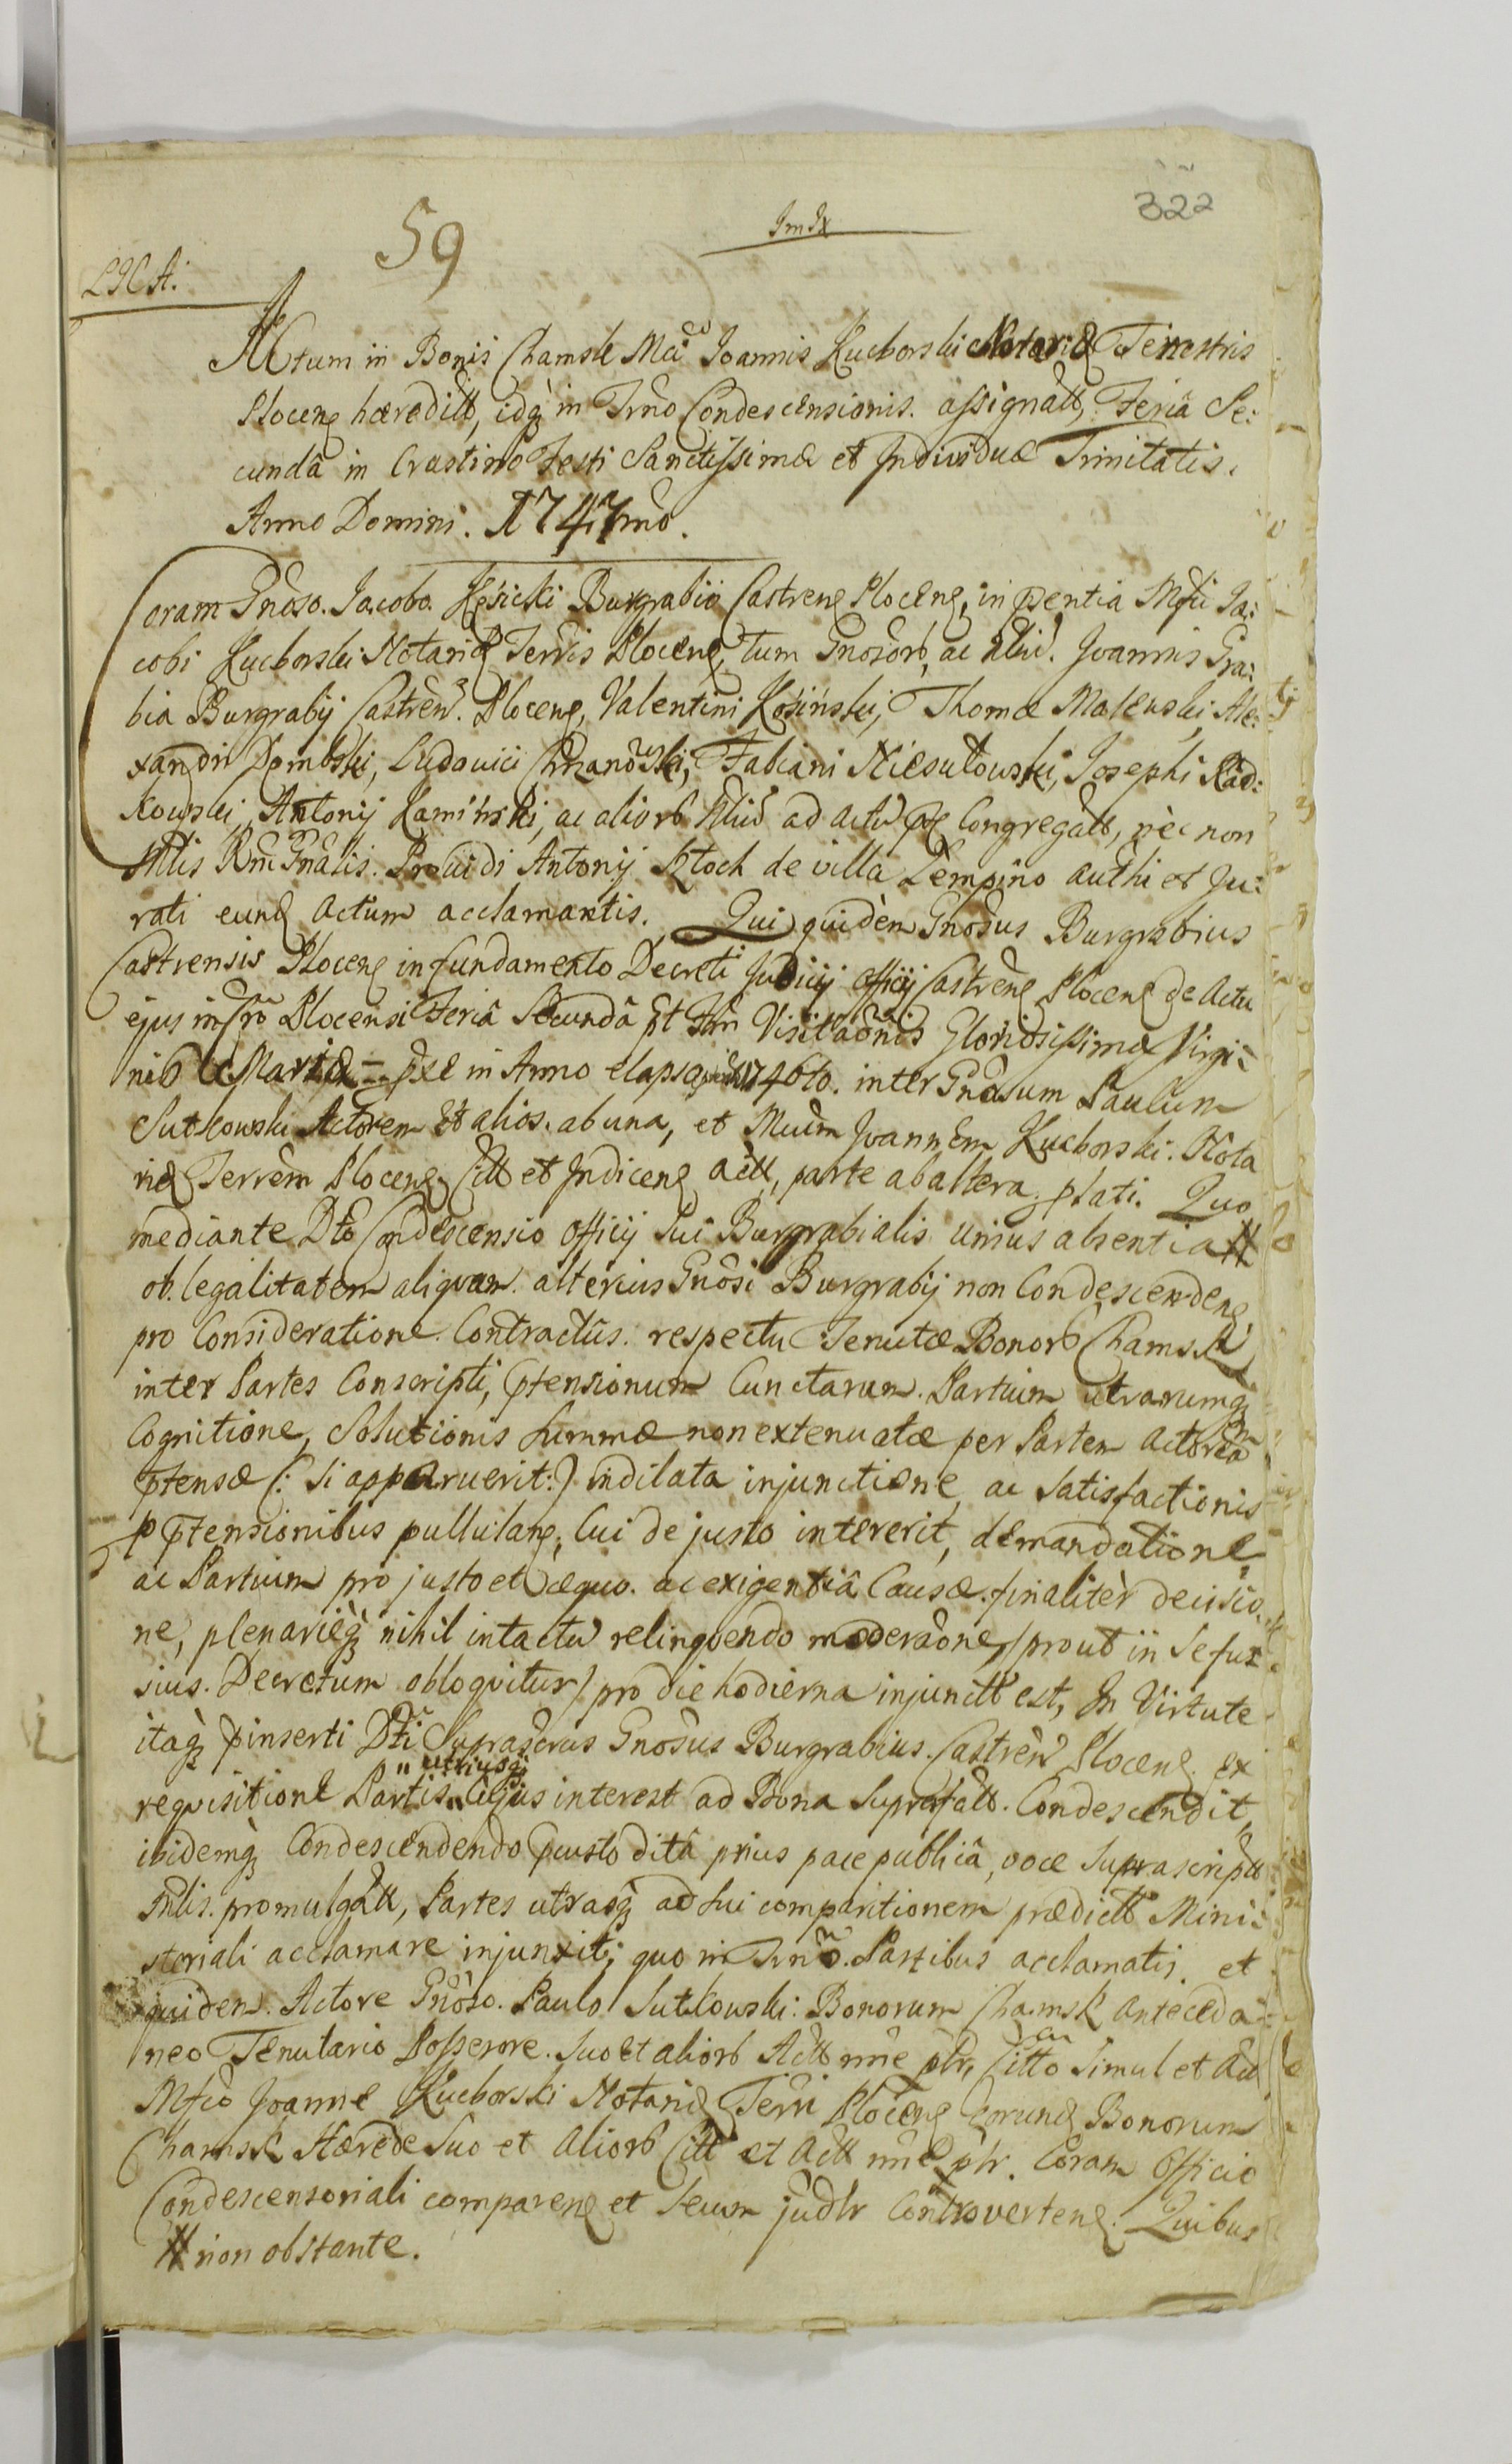 322
59
Actum in Bonis Chamsk Mci Joannis Kuchorski Notarii Terrestris
Plocens hæreditt, idq in Trno Condescensionis. assignatt, Feriâ Se:
cundâ in Crastino Festi Sanctissimæ et Individuæ Trinitatis.
Anno Domini. 1747mo.
Coram Gnoso. Jacobo. Kęsicki Burgrabio Castrens Plocens, in pntia Mfci Ja:
cobi Kuchorski Notarii Terris Plocens, tum Gnosorb, ac Nbiu. Joannis Gra:
bia Burgrabij Castren. Plocens, Valentini Kosiński, Thomæ Malewski, Ale:
xandri Dembski, Ludovici Chrzanowski, Fabiani Niesułowski, Josephi Rad:
kowski, Antonij Kamiński, ac aliorb Nbiu ad actu pns Congregatt, nèc non
Mtlis Rni Gnalis. Providi Antonij Kłoch de villa Lempino authi et Ju:
rati eund actum acclamantis. Qui quidèm Gnosus Burgrabius
Castrensis Plocens in fundamento Decreti Judicij officij Castrens Plocens de actu
ejus in Cstro Plocensi Feriâ Secundâ pt Ftm Visitaonis Gloriosissimæ Virgi:
nis Mariæ pxe in Anno elapso 1746to. inter Gnosum Paulum
Sutkowski Actorem et alios. ab una, et Mucum Joannem Kuchorski. Nota
riu Terrem Plocens Citt et Indicens actt, parte ab altera. plati. Quo
mediante Dto Condescensio officij sui Burgrabialis unius absentia #
ob. legalitatem aliquam. alterius Gnosi Burgrabij non Condescendens,
pro Consideratione. Contractûs. respectu Tenutæ Bonorb Chamsk
inter Partes Conscripti, Ptensionum Cunctarum. Partium utrarumq
Cognitione, Solutionis Summæ non extenuatæ per Partem actorea
Ptensæ (: si apparuerit:) indilata injunctione, ac Satisfactionis
p Ptensionibus pullulans, Cui de justo intererit, demandatione
ac Partium pro justo et æquo. ac exigentiâ Causæ. finalitèr decisio:
ne, plenarieq nihil intactu relinquendo moderaone, /prout in se fu:
sius. Decretum obloquitur/ pro die hodierna injunctt est, In Virtute
itaq pinserti Dti Suprascrus Gnosus Burgrabius. Castren Plocens. ex
requisitione Partis " utriusq " Cujus interest ad Bona Suprafatt. Condescendit,
ibidemq Condescendendo Pcustoditâ prius pace publicâ, voce Suprascriptt
Mtlis. promulgatt, Partes utrasq ad sui comparitionem prædictt Mini:
steriali acclamare injunxit; quo in Trno. Partibus acclamatis. et
quidem. Actore Gnoso. Paulo Sutkowski: Bonorum Chamsk anteceda:
neo Tenutario Possessore. Suo et aliorb Actt nne ptr, Citto simul et Act
Mfco Joanne Kuchorski Notario Terri Plocens Eorund Bonorum
Chamsk Hærede Suo et aliorb Citt et Actt nne ptr. Coram Officio
Condescensoriali comparens et Secum judtr Controvertens. Quibus
# non obstante.